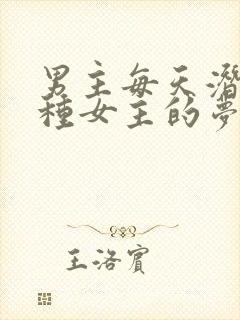 男主每天潛
種女主的夢
王洛賓